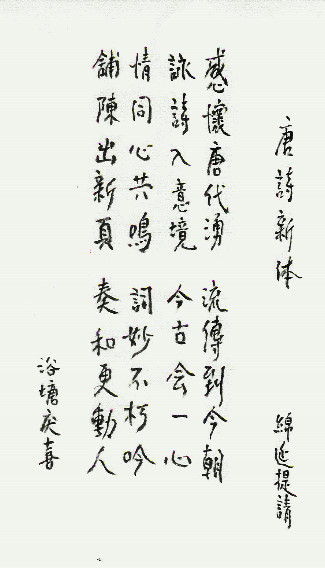 唐詩新体 綿延提請
感懷唐代湧 流傳到今朝
詠詩入意境 今古会一心
情同心共鳴 詞妙不朽吟
舖陳出新頁 奏和更動人
浴塘戾喜